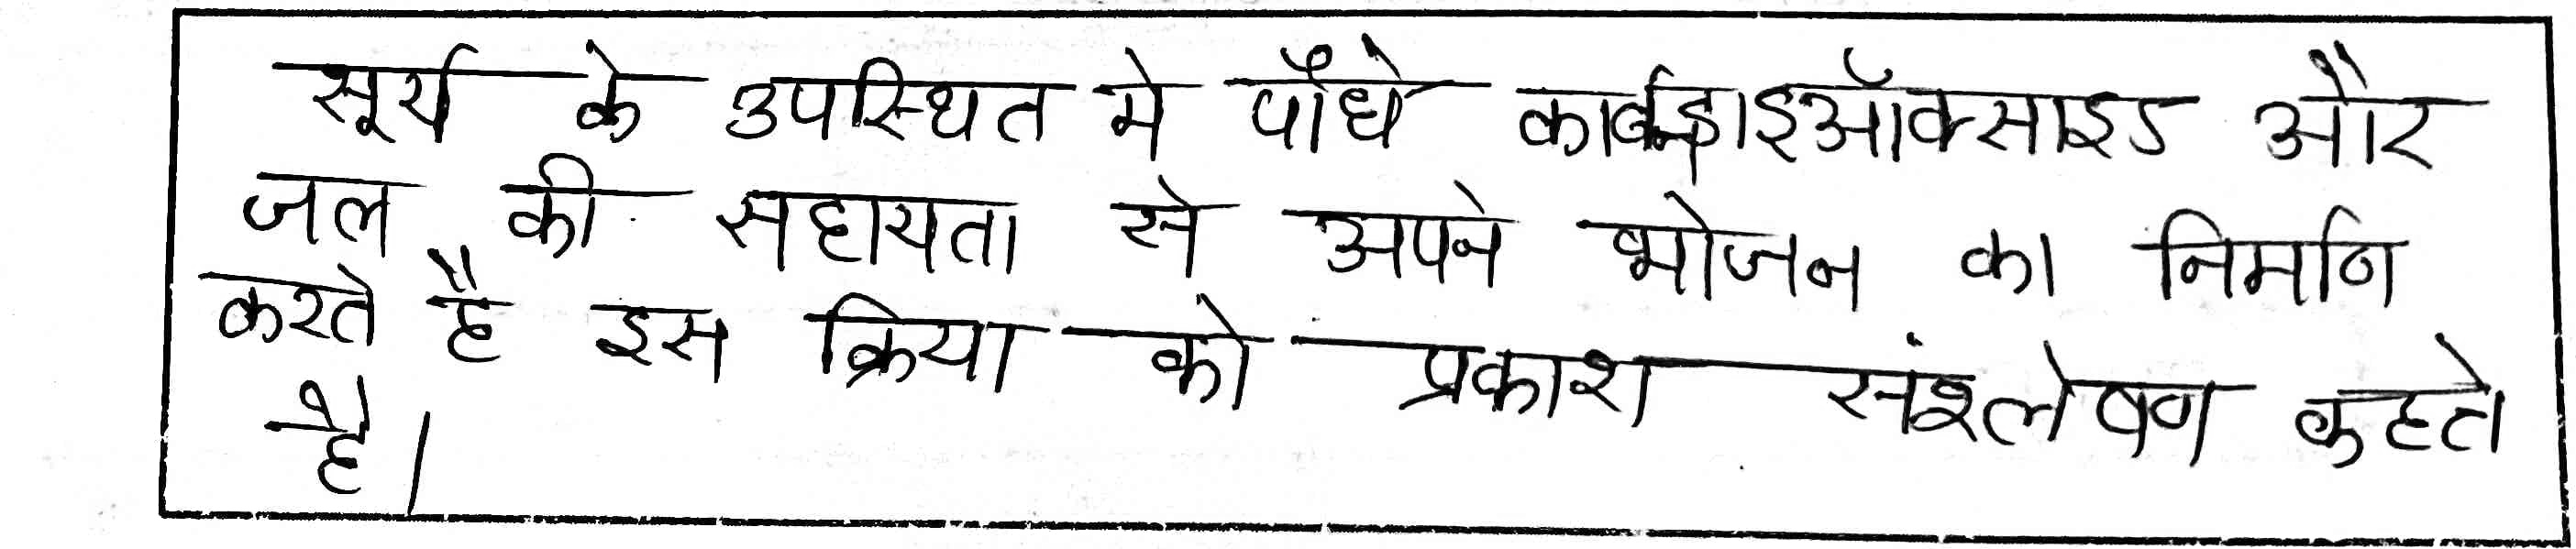 सूर्य के उपस्थित मे पौधे कार्बनडाइऑक्साइड और
जल की सहायता से अपने भोजन का निर्माण
करते है इस क्रिया को प्रकाश संश्लेषण कहते
है।